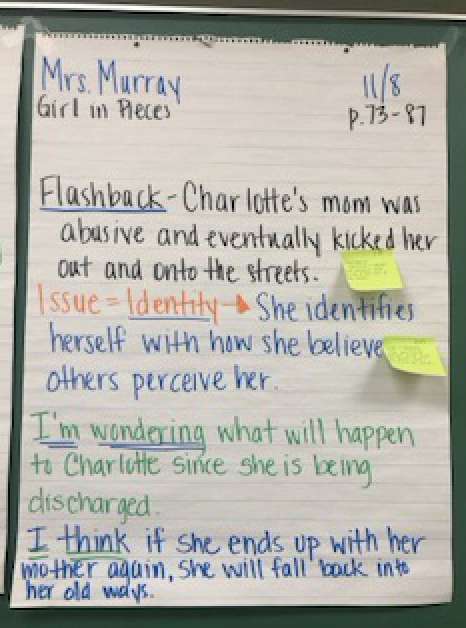 Mrs. Murray
11/8
Girl in Pieces
p.73-87
Flashback - Charlotte's mom was
abusive and eventually kicked her
out and onto the streets.
Issue = Identity → She identifies
herself with how she believe
others perceive her.
I'm wondering what will happen
to Charlotte since she is being
discharged.
I think if she ends up with her
mother again, she will fall back into
her old ways.